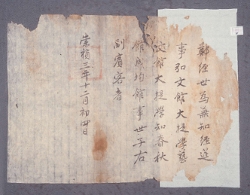 鄭經世爲兼知經筵
事弘文館大提學藝
文館大提學知春秋
館成均館事世子右
副賓客者
崇禎三年十二月初日